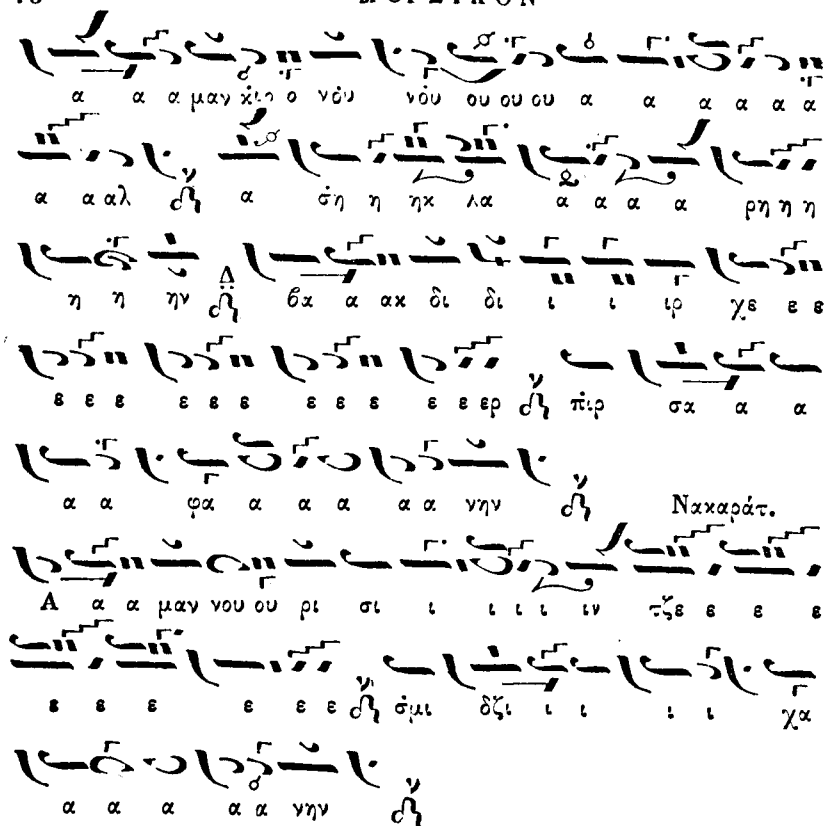 α α α μαν κιο ο νόυ νόυ ου ου ου α α α α α α
α α αλ α ση η ηκ λα α α α α ρη η η
η η ην Δ βα α ακ δι δι ι ι ιρ χε ε ε
ε ε ε ε ε ε ε ε ε ε ε ερ πιρ σα α α
α α φα α α α α α νην Νακαράτ.
Α α α μαν νου ου ρι σι ι ι ι ι ιν τζε ε ε ε
ε ε ε ε ε ε σμι δζι ι ι ι ι χα
α α α α α νην